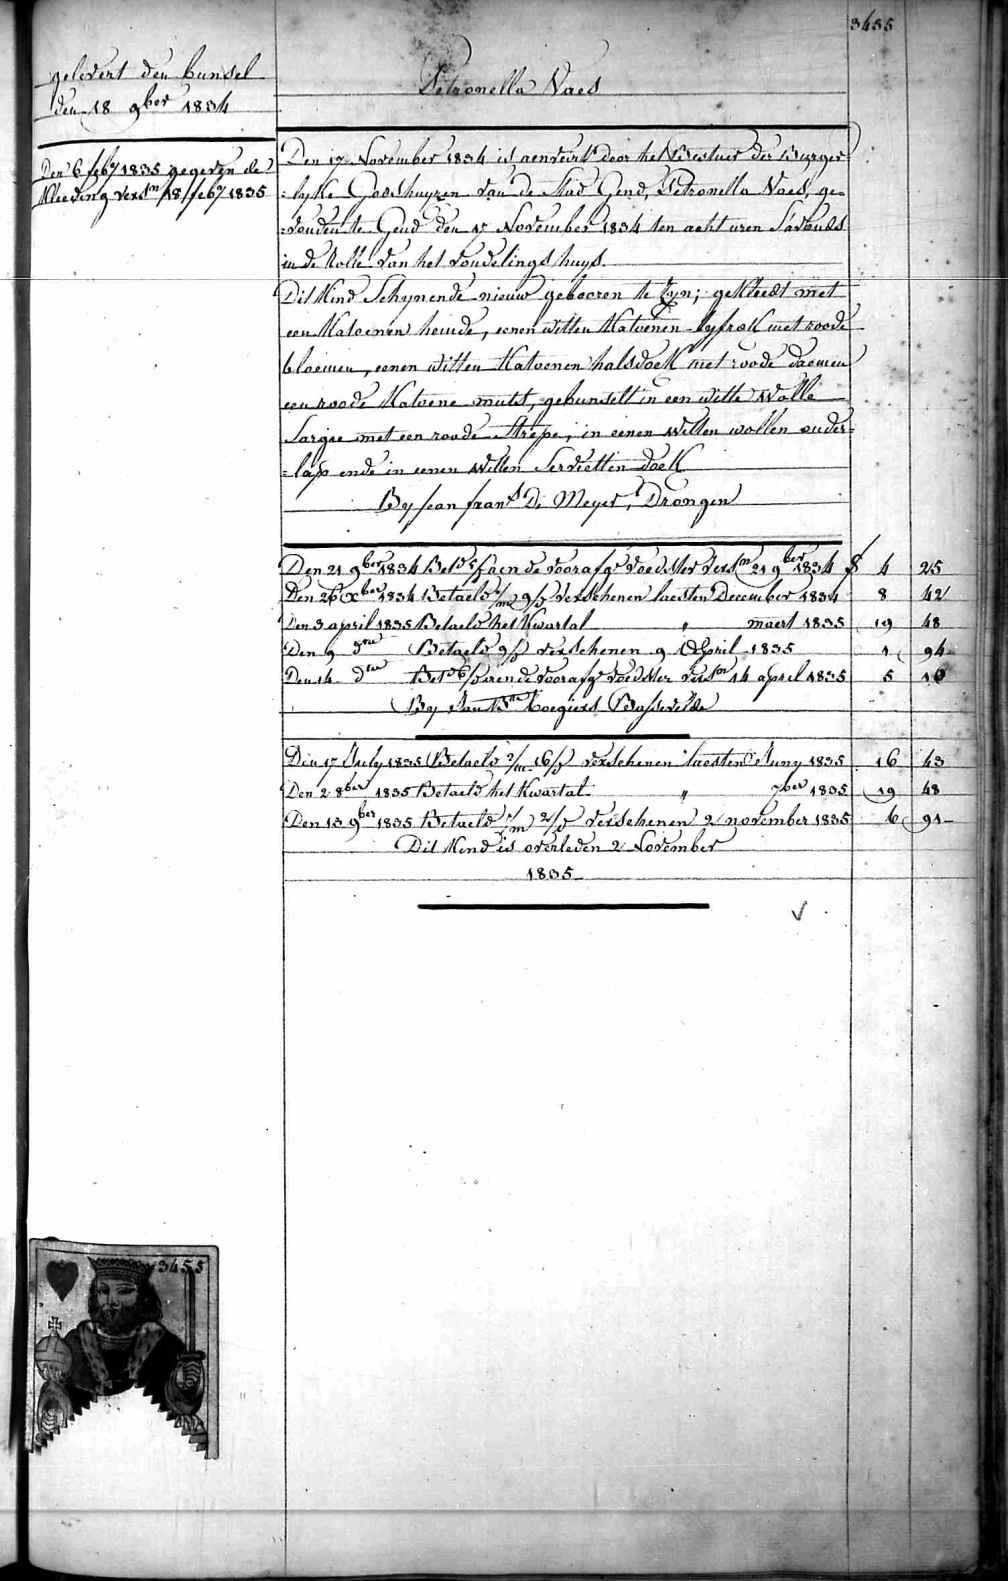 3455
gelevert den bunsel
den 18 9ber 1834
Petronella Naes
Den 6 feby 1835 gegeven de
Kleeding versn 18 feby 1835
Den 17 November 1834 is aenveirt door het Bestuer der Burger
=lyke Godshuyzen van de Stad Gend, Petronella Naes, ge=
=vonden te Gend den 17 November 1834 ten acht uren S'avonds
in de Rolle van het vondelings huys.
Dit Kind Schynende nieuw gebooren te Zyn; gekleedt met
een Katoenen hemde, eenen witten Katoenen lyfrok met roode
bloemen, eenen witten Katoenen halsdoek met roode
een roode Katoene muts, gebunselt in een witte Wolle
Sargie met een roode Strepe, in eenen Witten wollen onder=
=lap ende in eenen Witten Servietten doek
By Jean frans De Meyer, Drongen
Den 21 9ber 1834 Betd 5/ en de voorafge voedster versn 21 9ber 1834 f 4 25
Den 26 Xber 1834 Betaeld 1/m 9/d verschenen laesten December 1834 8 42
Den 3 april 1835 Betaeld het Kwartal " maert 1835 19 48
Den 9 dne Betaeld 9/d verschenen 9 April 1835 1 94
Den 14 dne Betd 5/d en de voorafge voedster versn 14 april 1835 5 10
By Rogiers Bassevelde
Den 17 July 1835 Betaeld 2/m 16/d verschenen laesten Juny 1835 16 43
Den 2 8ber 1835 Betaeld het Kwartal " 7ber 1835 19 48
Den 13 9ber 1835 Betaeld 1/m 2/d verschenen 2 november 1835 6 91
Dit Kind is overleden 2 November
1835
3455